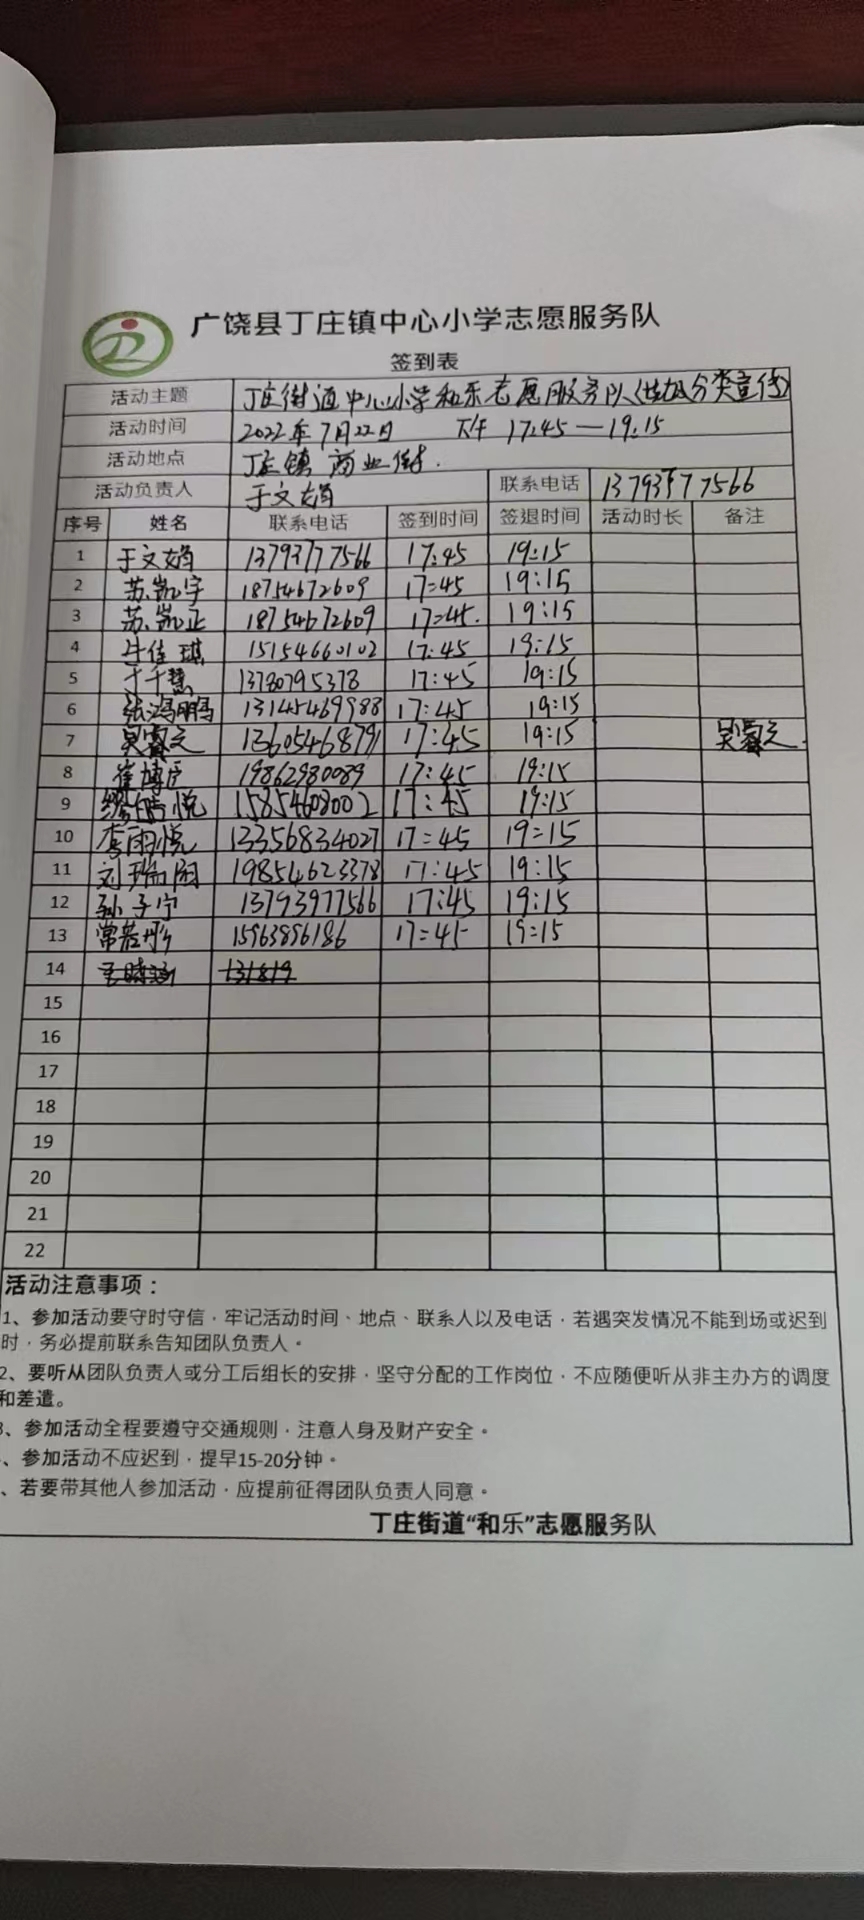 广饶县丁庄镇中心小学志愿服务队
签到表
活动主题 丁庄街道中心小学和乐志愿服务队(垃圾分类宣传)
活动时间 2022年7月22日 下午 17:45—19:15
活动地点 丁庄镇 商业街.
活动负责人 于文娟 联系电话
序号 姓名 联系电话 签到时间 签退时间 活动时长 备注
1 于文娟 13793777566 17:45 19:15
2 苏凯宇 18754672609 17:45 19:15
3 苏凯正 18754672609 17:45. 19:15
4 牛佳琪 15154660102 17:45 19:15
5 于千慧 13780795378 17:45 19:15
6 张鸿鹏 13145469988 17:45 19:15
7 13605468791 17:45 19:15
8 崔博 19862980089 17:45 19:15
9 缪晴悦 15854608002 17:45 19:15
10 李雨悦 13356834027 17:45 19:15
11 刘瑞阁 19854623378 17:45 19:15
12 孙子宁 13793977566 17:45 19:15
13 常若彤 15963896186 17:45 19:15
14 131819
15
16
17
18
19
20
21
22
活动注意事项：
1、参加活动要守时守信，牢记活动时间、地点、联系人以及电话，若遇突发情况不能到场或迟到
时，务必提前联系告知团队负责人。
2、要听从团队负责人或分工后组长的安排，坚守分配的工作岗位，不应随便听从非主办方的调度
和差遣。
3、参加活动全程要遵守交通规则，注意人身及财产安全。
、参加活动不应迟到，提早15-20分钟。
、若要带其他人参加活动，应提前征得团队负责人同意。
丁庄街道“和乐”志愿服务队